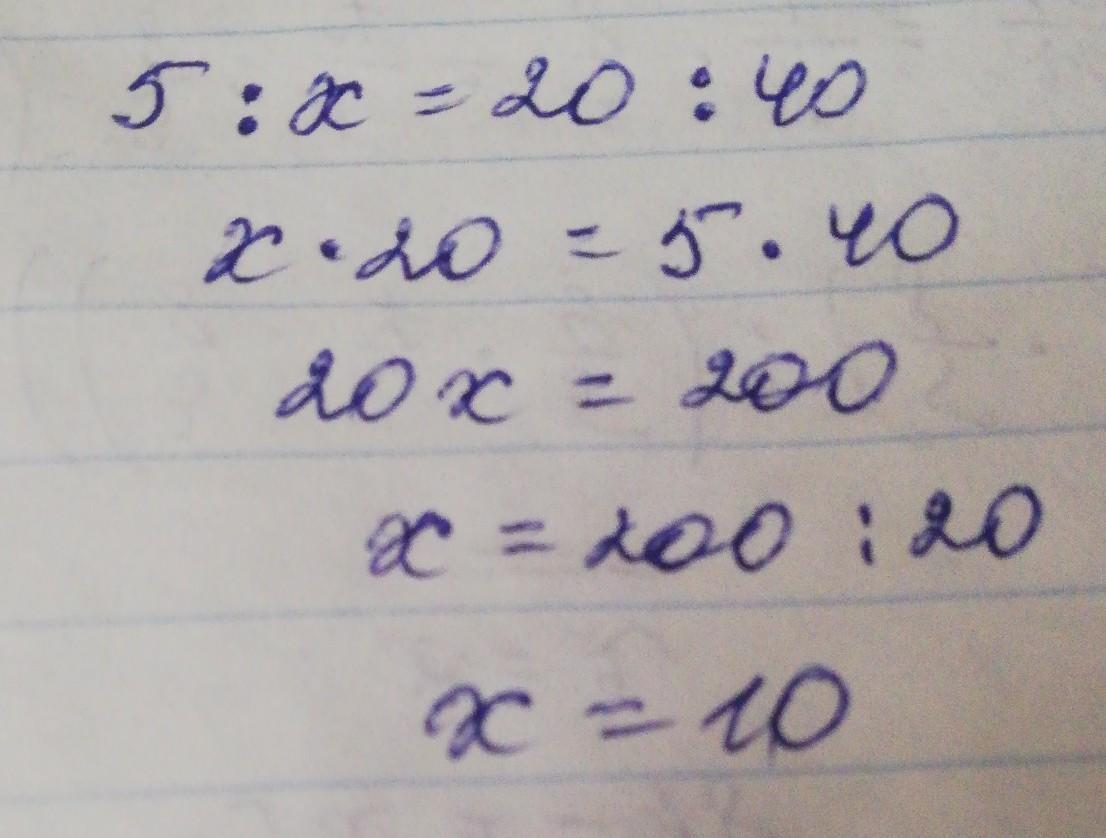 5 : x = 20 : 40
x · 20 = 5 · 40
20x = 200
x = 200 : 20
x = 10